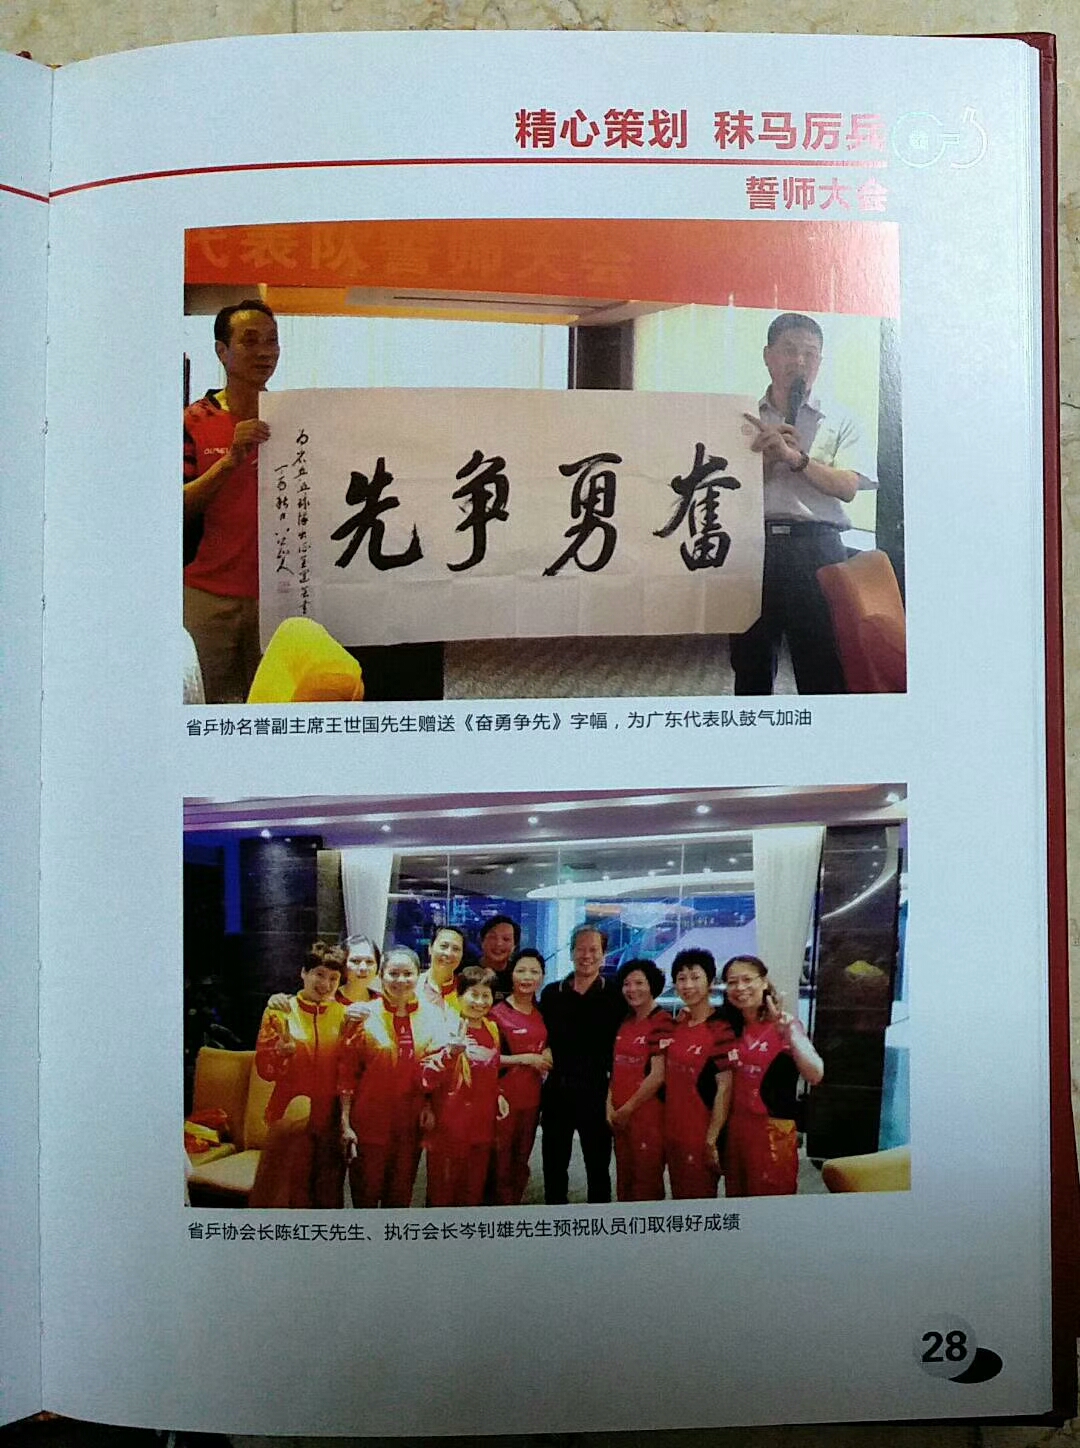 精心策划 秣马厉兵
誓师大会
代表队誓师大会
奋勇争先
省乒协名誉副主席王世国先生赠送《奋勇争先》字幅，为广东代表队鼓气加油
省乒协会长陈红天先生、执行会长岑钊雄先生预祝队员们取得好成绩
28